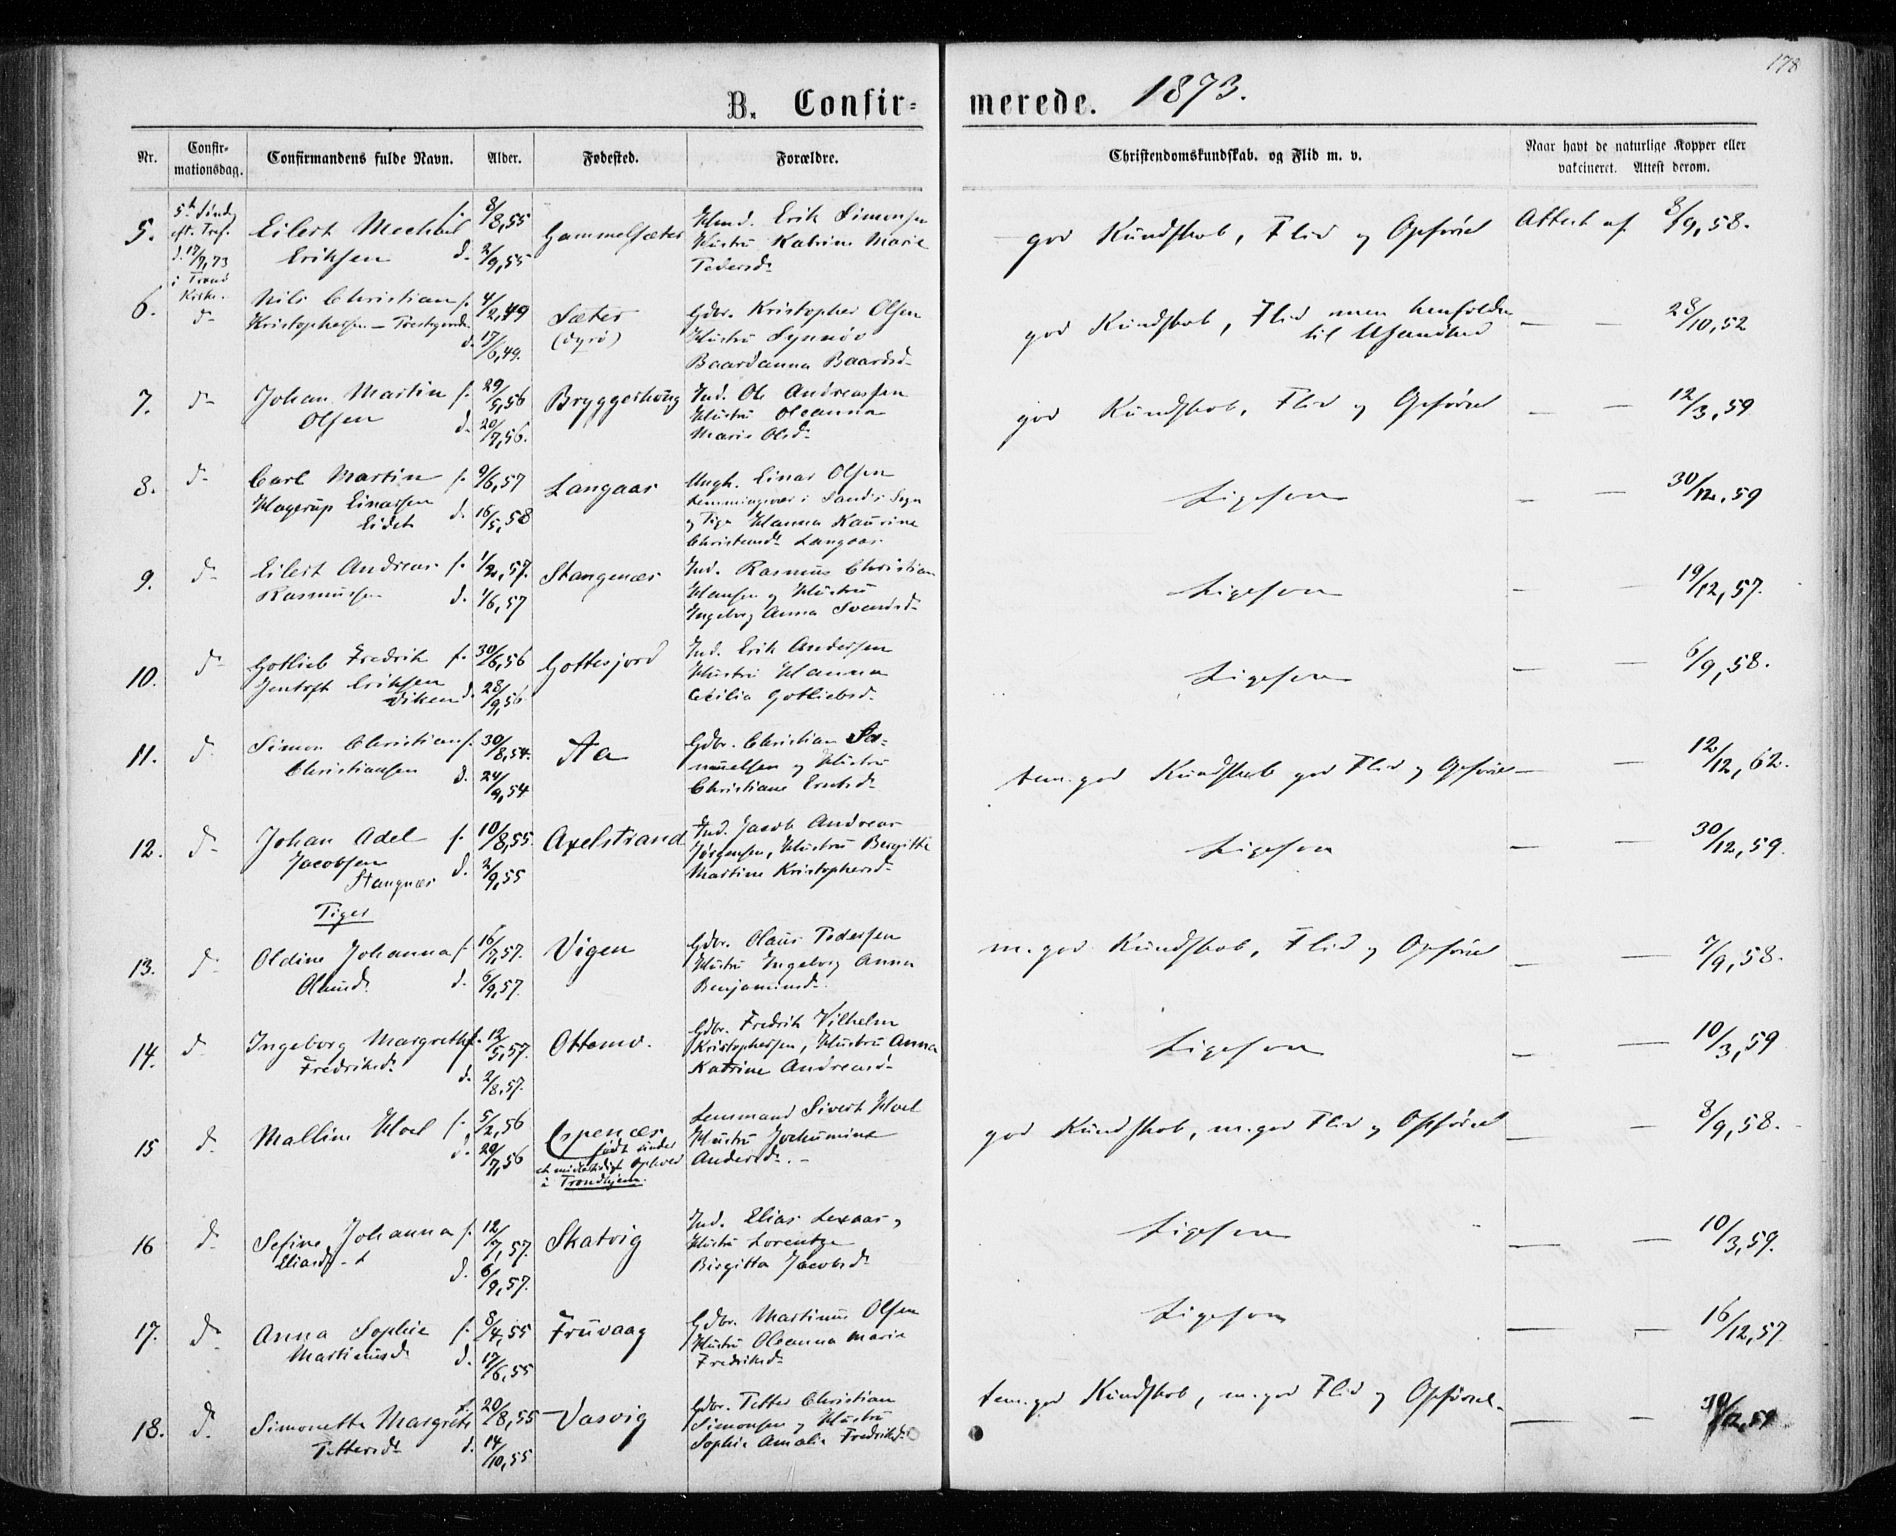 178
B. Confir-
merede. 1873.
Nr.
Confir-
mationsdag.
Confirmandens fulde Navn.
Alder.
Fødested.
Forældre.
Christendomskundskab. og Flid m. v.
Naar havt de naturlige Kopper eller
vakcineret. Attest derom.
5.
5te Sønd
eft. Tref.
i Tranø
Kirke.
Eilert Mechal
Eriksen
f. 8/8,55
d. 2/9,55
Gammelsæter
Hmd. Erik Simonsen
Hustru Katrine Marie
Pedersd.
god Kundskab, Flid og Opførsel
Attest af 8/9,58.
6.
do
Nils Christian
Kristophersen
f. 4/2,49
d. 17/6,49.
Sæter
(Dyrø)
Gdbr. Kristopher Olsen
Hustru Synnøv
Baardanna Baardsd.
god Kundskab, Flid
— — 28/10,52
7.
do
Johan Martin
Olsen
f. 29/5,56
d. 20/7,56.
Bryggerhaug
Ind. Ole Andreassen
Hustru Oleanna
Marie Olsd.
god Kundskab, Flid og Opførsel
— — 12/3,59
8.
do
Carl Martin
Hagerup Einarsen
Eidet
f. 9/6,57
d. 16/5,58
Langaas
Ungk. Einar Olsen
Lemmingvær i Sands Sogn
og Pige Hanna Kaurine
Christensd. Langaas
Ligesom
— — 30/12,59
9.
do
Eilert Andreas
Rasmussen
f. 1/2,57.
d. 1/6,57
Stangenæs
Ind. Rasmus Christian
Hansen og Hustru
Ingeborg Anna Svendsd.
Ligesom
— — 19/12,57.
10.
do
Gotlieb Fredrik
Jentoft Eriksen
Viken
f. 30/6,56
d. 28/9,56
Gottesjord
Ind. Erik Andersen
Hustru Hanna
Cecilia Gotliebsd.
Ligesom
— — 6/9,58.
11.
do
Simon Christian
Christiansen
f. 30/8,54.
d. 24/9,54
Aa
Gdbr. Christian Sa-
muelsen og Hustru
Christiane Erntsd.
tem. god Kundskab god Flid og Opførsel
— — 12/12,62.
12.
do
Johan Adel
Jacobsen
Stangnæs
f. 10/8,55.
d. 2/9,55
Axelstrand
Ind. Jacob Andreas
Jørgensen, Hustru Bergitte
Martine Kristophersd.
Ligesom
— — 30/12,59.
Piger
13.
do
Oldine Johanna
Olausd.
f. 16/7,57.
d. 6/9,57.
Vigen
Gdbr. Olaus Pedersen
Hustru Ingeborg Anna
Benjaminsd.
m. god Kundskab, Flid og Opførsel
— — 7/9,58.
14.
do
Ingeborg Margrethe
Fredriksd.
f. 12/5,57.
d. 2/8,57.
Ottemo.
Gdbr. Fredrik Vilhelm
Kristophersen, Hustru Anna
Katrine Andreasd.
Ligesom
— — 10/3,59
15
do
Malline Hoel
f. 5/2,56
d. 20/7,56
Espenæs
født under
et midlertidigt Ophold
i Trondhjem.
Lensmand Sivert Hoel
Hustru Jochumine
Andersd. —
god Kundskab, m. god Flid og Opførsel
— — 8/9,58.
16
do
Sefine Johanna
Eliasd.
f. 12/7,57.
d. 6/9,57.
Skatvig
Ind. Elias Lexaas,
Hustru Lorentze
Birgitta Jacobsd.
Ligesom
— — 10/3,59.
17.
do
Anna Sophie
Martinusd.
f. 8/4,55
d. 17/6,55
Fruvaag
Gdbr. Martinus Olsen
Hustru Oleanna Marie
Fredriksd.
Ligesom
— — 16/12,57
18.
do
Simonette Margrete
Pettersd.
f. 20/8,55
d. 14/10,55
Vasvig
Gdbr. Petter Christian
Simonsen og Hustru
Sophie Amalie Fredriksd.
tem. god Kundskab, m. god Flid og Opførsel.
— — 30/12,59